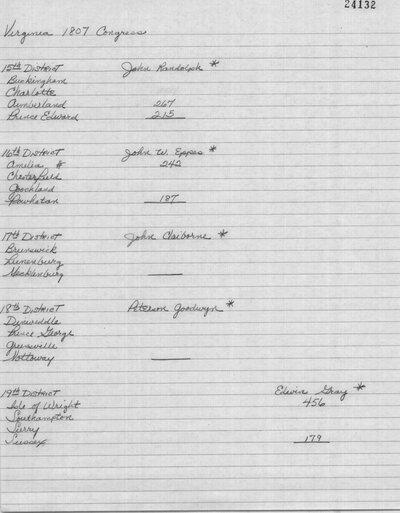 24132
Virginia 1807 Congress
15th District John Randolph *
Buckingham
Charlotte
Cumberland 267
Prince Edward 215
16th District John W. Eppes *
Amelia # 242
Chesterfield
Goochland
Powhatan 187
17th District John Claiborne *
Brunswick
Lunenburg
Mecklenburg
18th District Peterson Goodwyn *
Dinwiddle
Prince George
Greensville
Nottoway
19th District Edwin Gray *
Isle of Wright 456
Southampton
Surry
Sussex 179